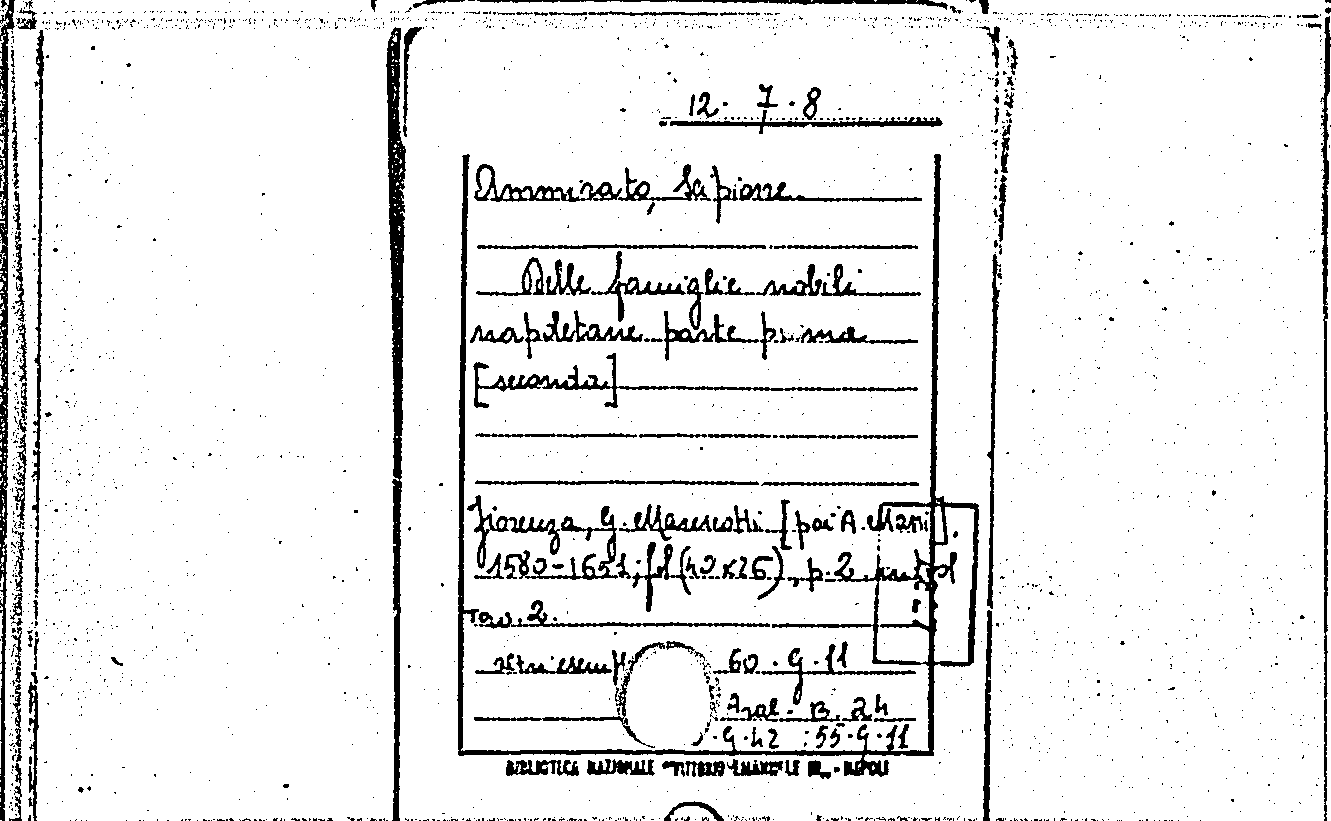 12. 7. 8
Ammirato, Scipione
Delle famiglie nobili
napoletane parte prima
[seconda]
Fiorenza, G. Marescotti [poi A. Massi].
1580-1651; fol (40x26), p. 2 in fol
Tav. 2.
60. G. 11
Aral. B. 24
.G.42 : 55.G.11
BIBLIOTECA NAZIONALE "VITTORIO EMANUELE III" - NAPOLI